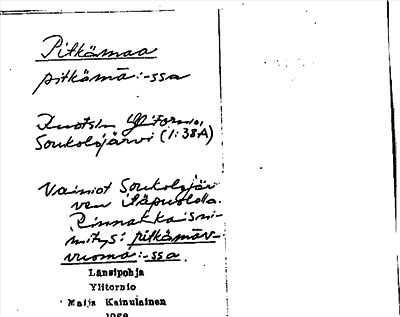 Pitkämaa
pitkämā:-ssa
Ruotsin Ylitornio,
Soukolojärvi (1:38A)
Vainiot Soukolojär
ven itäpuolella.
Rinnakkaisni-
mitys: pitkämäv-
vuoma:-ssa.
Länsipohja
Ylitornio
Maija Kainulainen